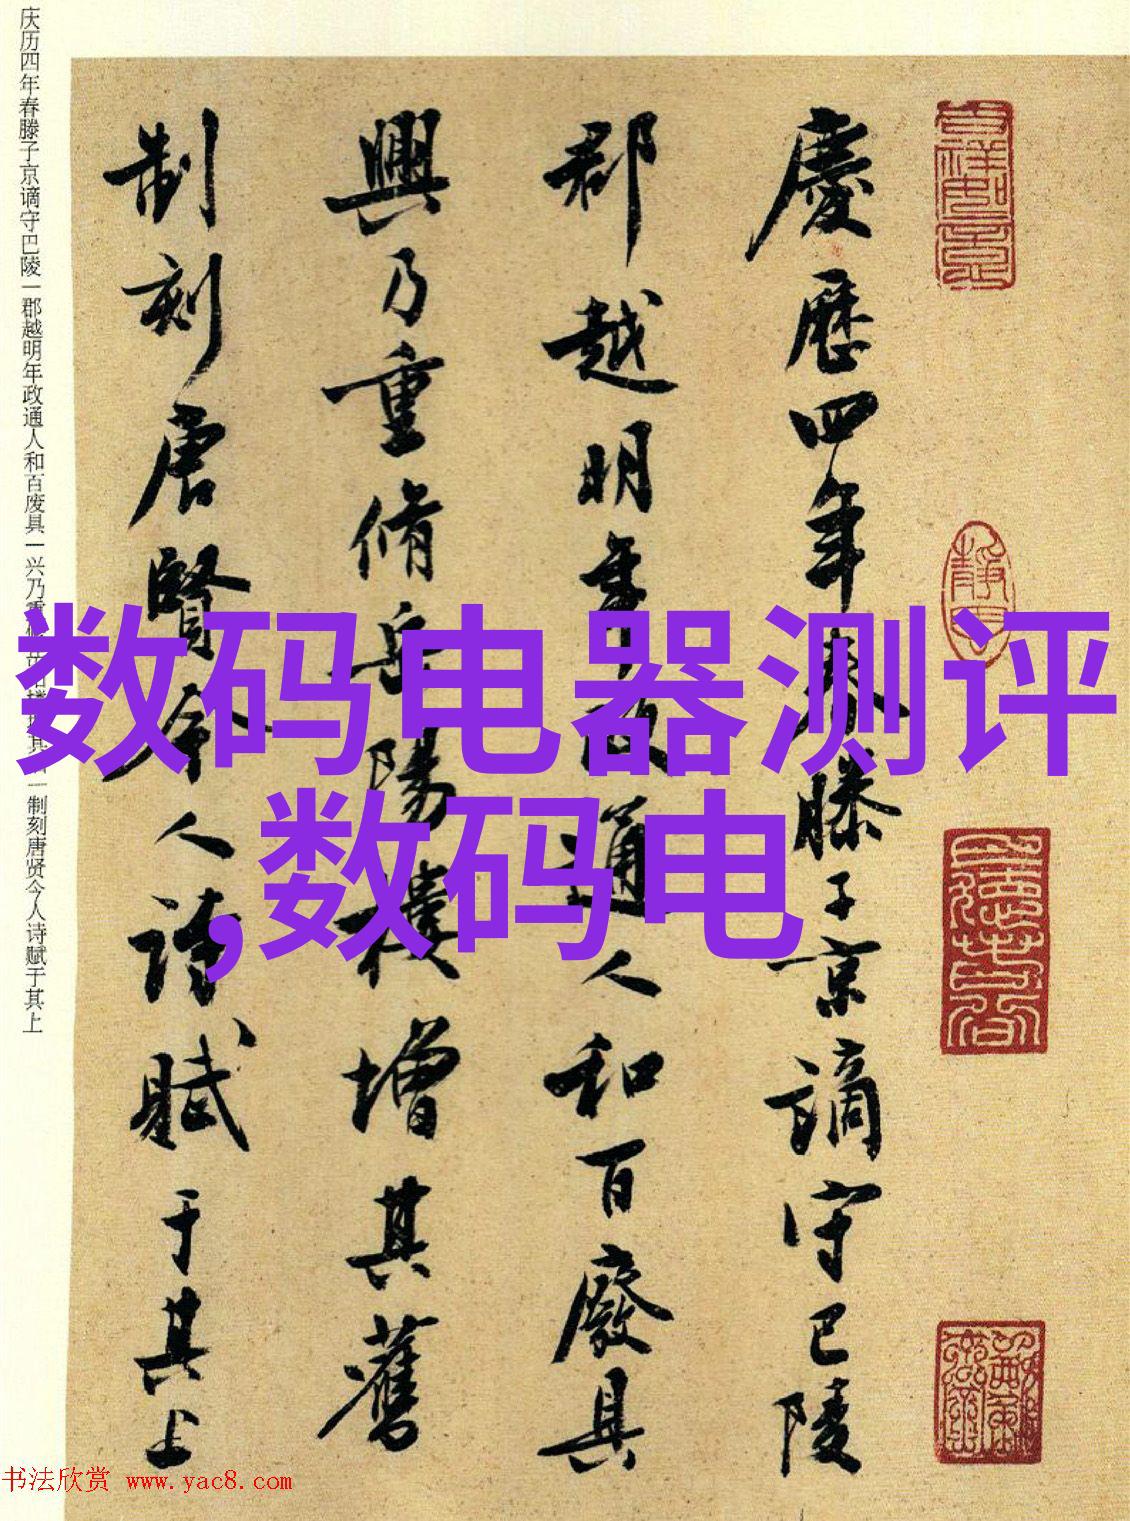 慶歷四年春滕子京謫守巴陵
郡越明年政通人和百廢具
興乃重脩岳陽樓增其舊
制刻唐賢今人詩賦于其上
庆历四年春滕子京谪守巴陵一郡越明年政通人和百废具一兴乃重
其
一制刻唐贤今人诗赋于其上
数码电器测评
,数码电
书法欣赏 www.yac8.com